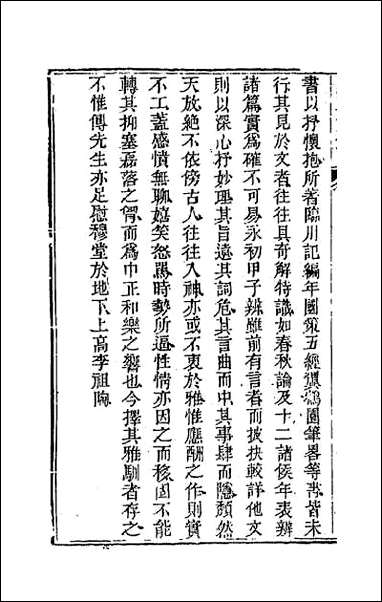 書以抒懷抱所著臨川記編年國策五經翼鷄園筆畧等書皆未
行其見於文者往往具奇解特識如春秋論及十二諸侯年表辨
諸篇實爲確不可易永初甲子辨雖前有言者而披抉較詳他文
則以深心抒妙理其旨遠其詞危其言曲而中其事肆而隱顏然
天放絶不依傍古人往往入神亦或不衷於雅惟應酬之作則實
不工蓋感憤無聊嬉笑怒罵時勢所逼性情亦因之而移固不能
轉其抑塞磊落之胷而爲中正和樂之響也今擇其雅馴者存之
不惟傅先生亦足慰穆堂於地下上高李祖陶